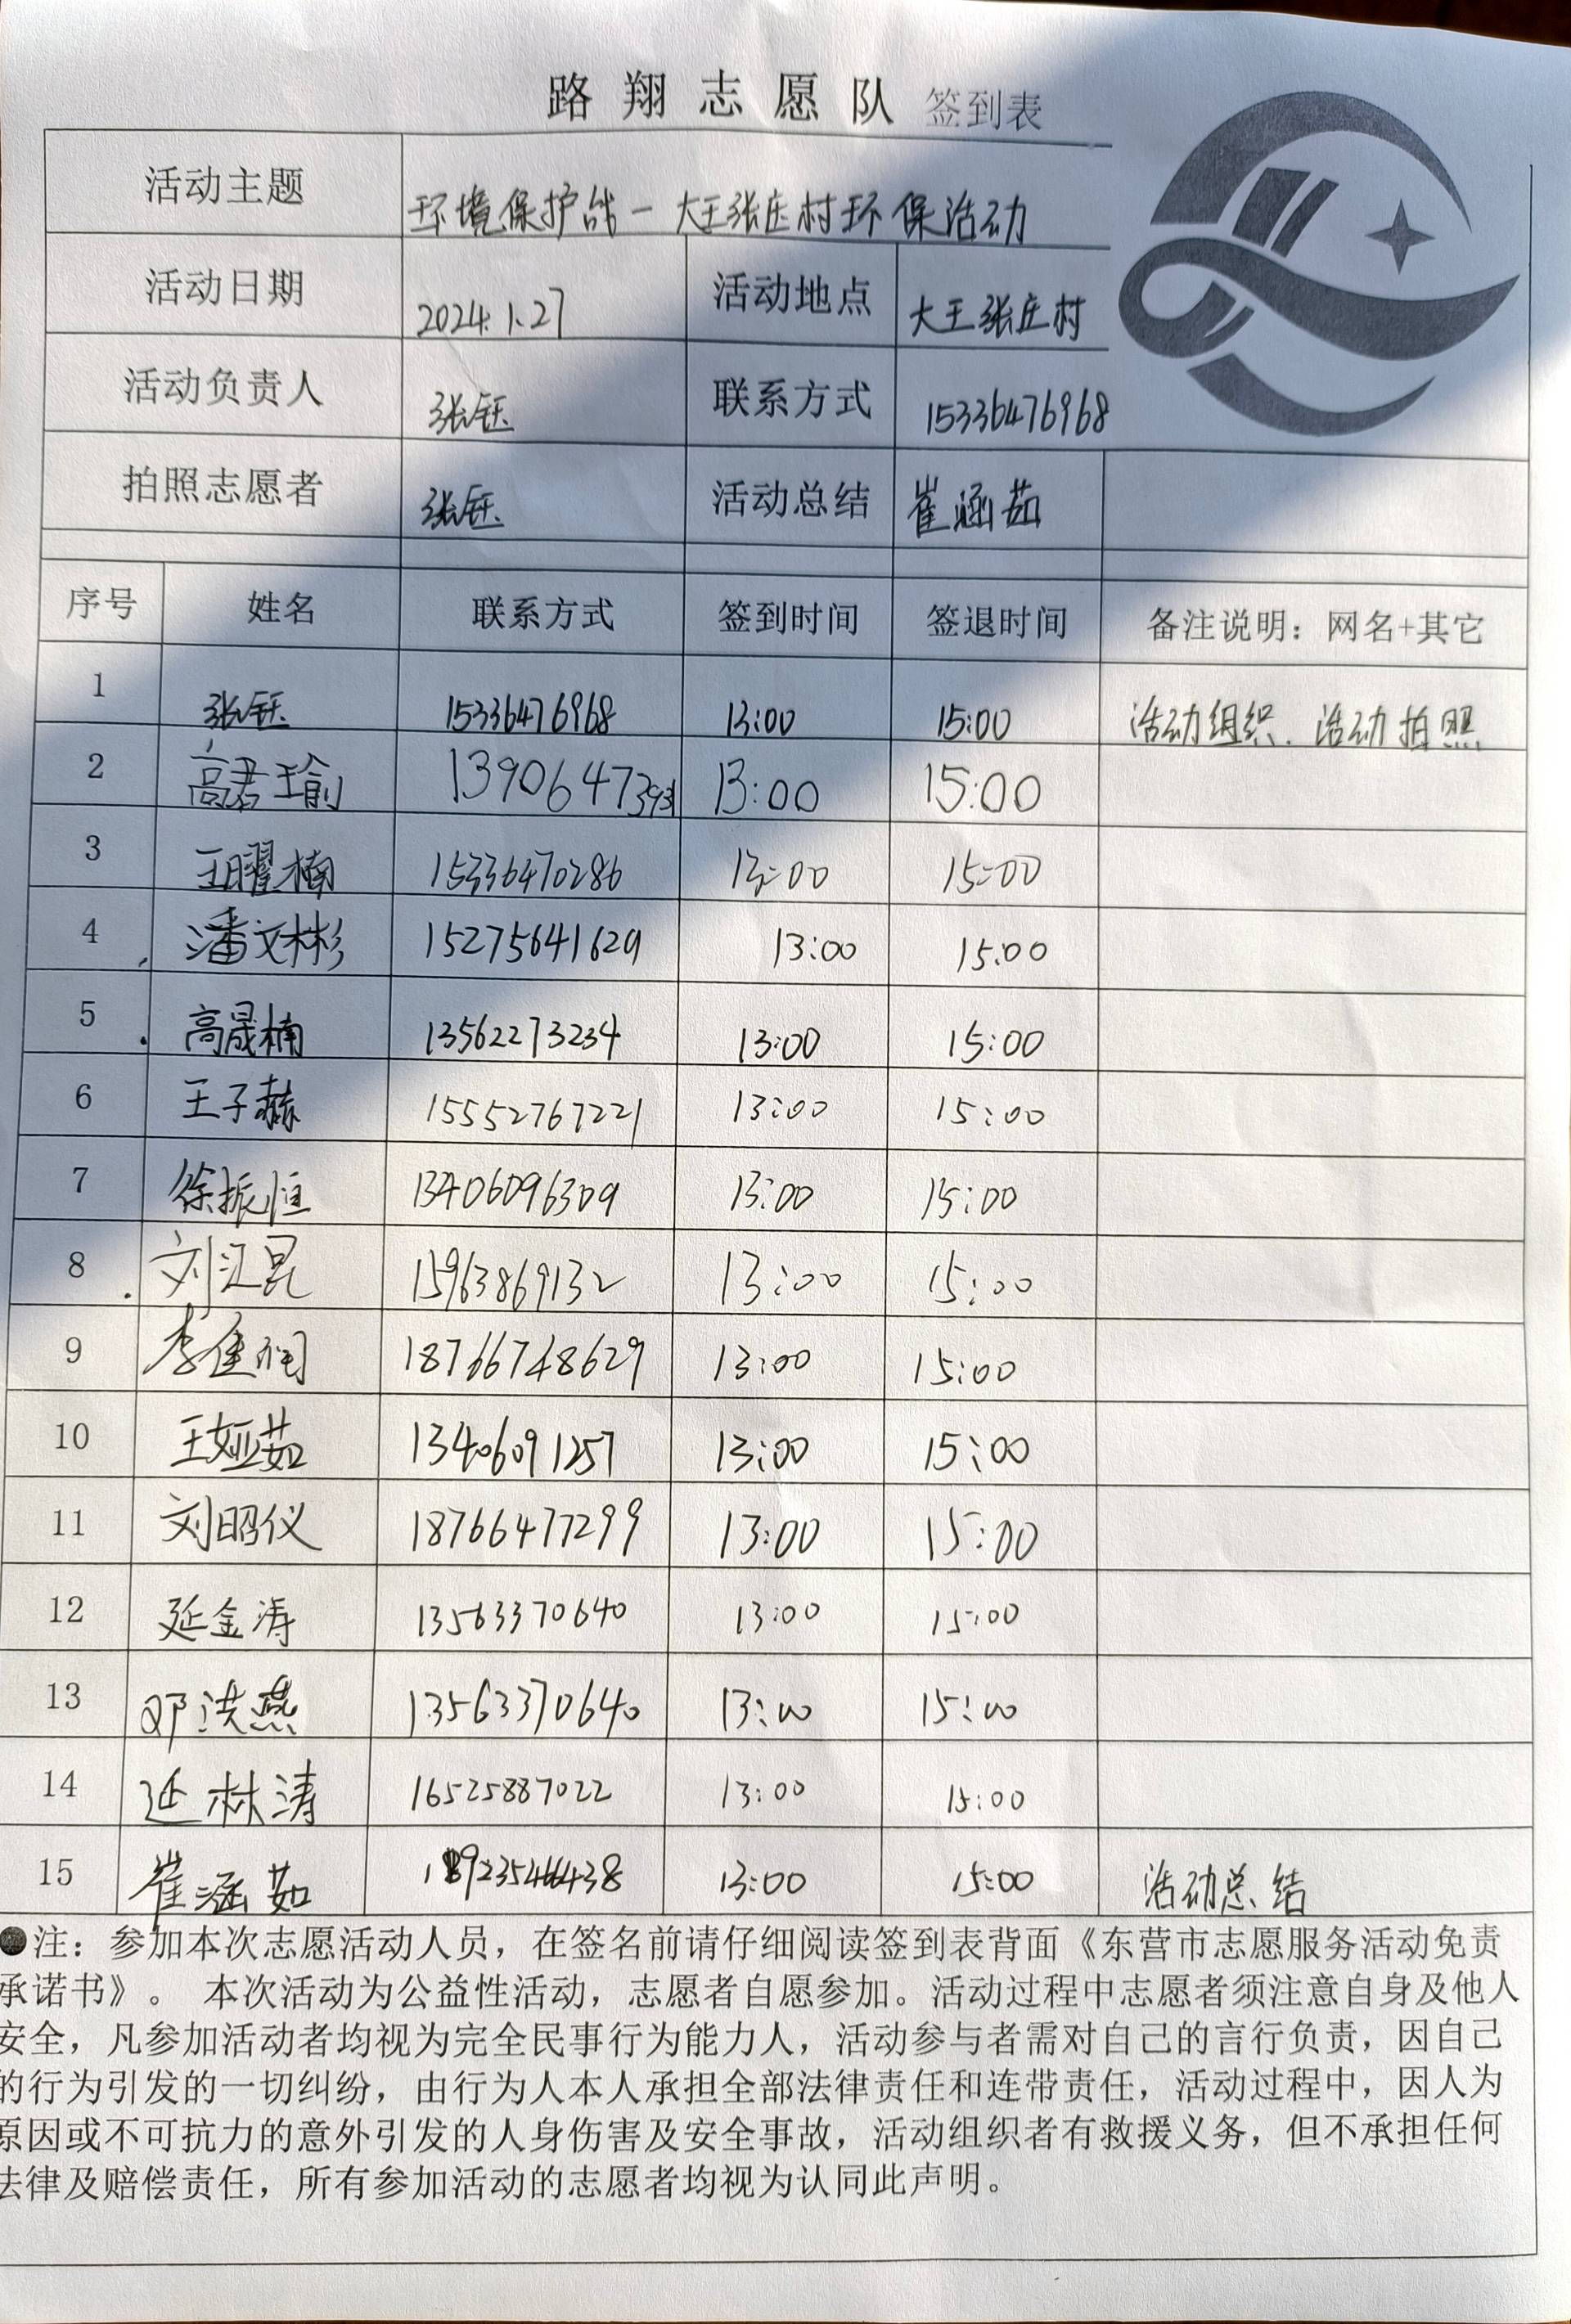 路翔志愿队 签到表
活动主题 环境保护战一大王张庄村环保活动
活动日期 2024.1.27 活动地点 大王张庄村
活动负责人 张钰 联系方式 15336476968
拍照志愿者 张钰 活动总结 崔涵茹
序号 姓名 联系方式 签到时间 签退时间 备注说明：网名+其它
1 张钰 15336476968 13:00 15:00 活动组织、活动拍照
2 高君瑜 13906473931 13:00 15:00
3 王曜楠 15336470286 13:00 15:00
4 潘文彬 15275641629 13:00 15:00
5 高晟楠 13562273234 13:00 15:00
6 王子赫 15552767221 13:00 15:00
7 徐振恒 13406096309 13:00 15:00
8 刘汇昆 15963869132 13:00 15:00
9 李佳润 18766748629 13:00 15:00
10 王娅茹 13406091257 13:00 15:00
11 刘昭仪 18766477299 13:00 15:00
12 延金涛 13563370640 13:00 15:00
13 邓洪燕 13563370640 13:00 15:00
14 延林涛 16525887022 13:00 15:00
15 崔涵茹 13:00 15:00 活动总结
●注：参加本次志愿活动人员，在签名前请仔细阅读签到表背面《东营市志愿服务活动免责
承诺书》。 本次活动为公益性活动，志愿者自愿参加。活动过程中志愿者须注意自身及他人
安全，凡参加活动者均视为完全民事行为能力人，活动参与者需对自己的言行负责，因自己
的行为引发的一切纠纷，由行为人本人承担全部法律责任和连带责任，活动过程中，因人为
原因或不可抗力的意外引发的人身伤害及安全事故，活动组织者有救援义务，但不承担任何
法律及赔偿责任，所有参加活动的志愿者均视为认同此声明。